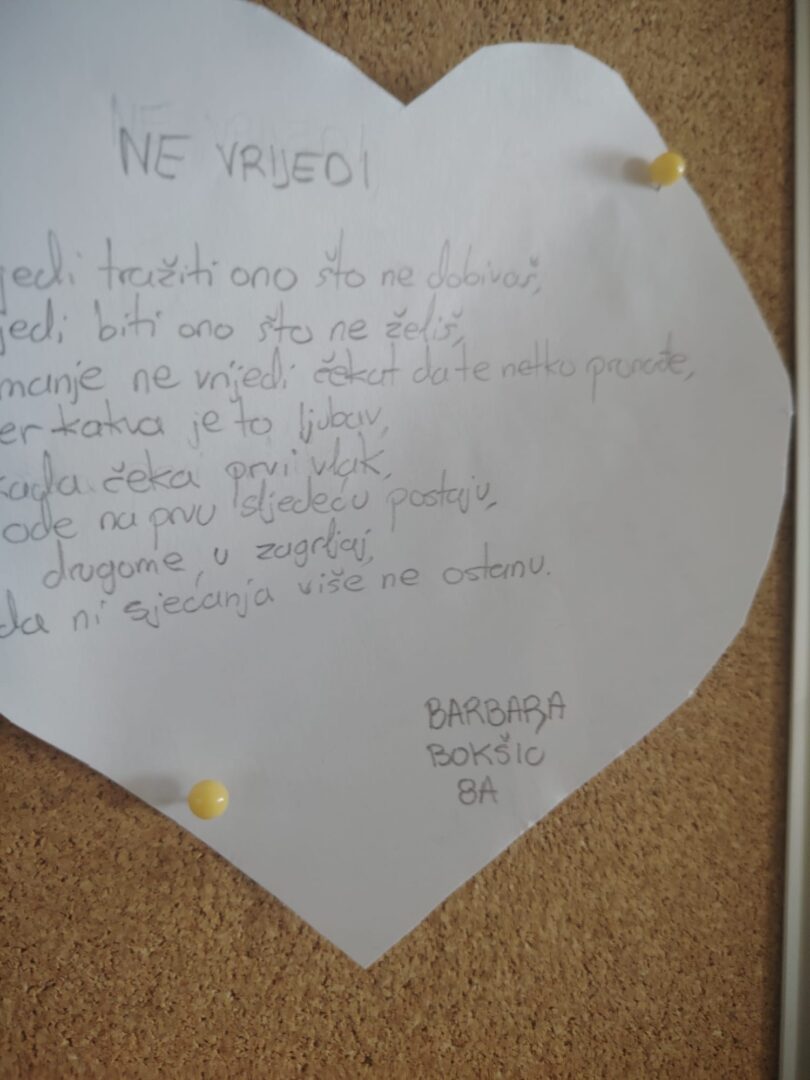 NE VRIJEDI
jedi tražiti ono što ne dobivaš,
jedi biti ono što ne želiš,
manje ne vrijedi čekat da te netko pronađe,
er kakva je to ljubav,
kada čeka prvi vlak,
ode na prvu sljedeću postaju,
drugome, u zagrljaj,
da ni sjećanja više ne ostanu.
BARBARA
BOKŠIĆ
8A